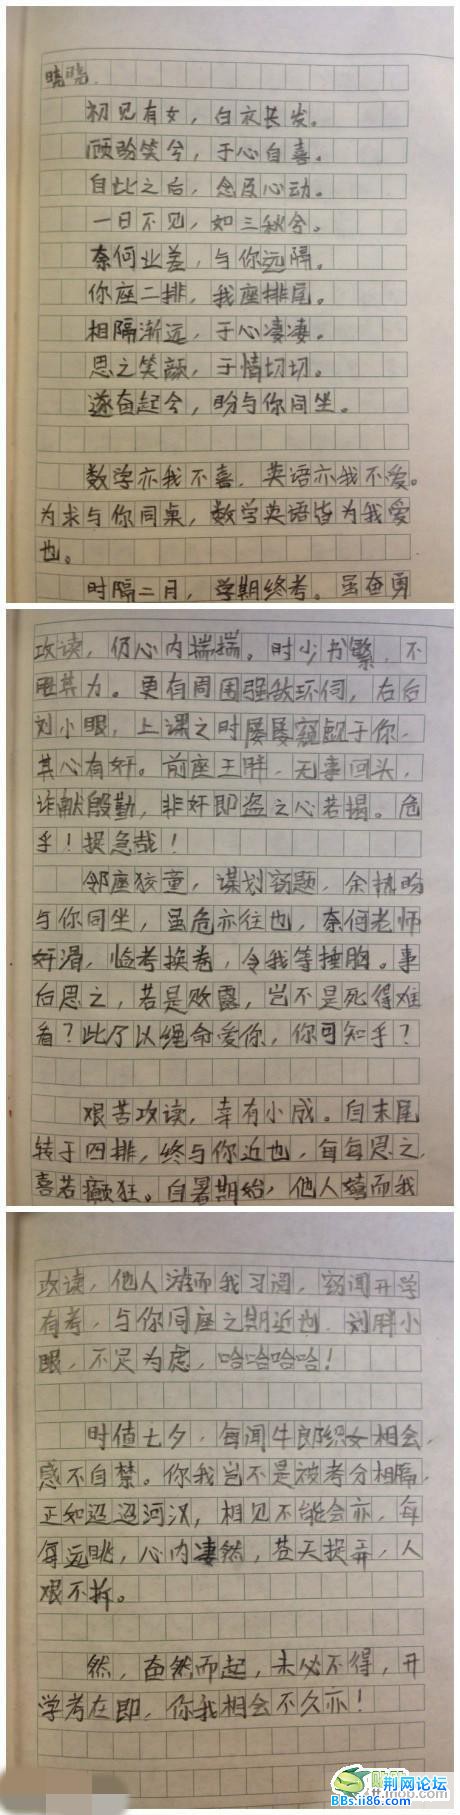 晓晓.
初见有女，白衣长发。
顾盼笑兮，于心自喜。
自此之后，念及心动。
一日不见，如三秋兮。
奈何业差，与你远隔。
你座二排，我座排尾。
相隔渐远，于心凄凄。
思之笑颜，于情切切。
遂奋起兮，盼与你同坐。
数学亦我不喜，英语亦我不爱。
为求与你同桌，数学英语皆为我爱
也。
时隔二月，学期终考。虽奋勇
攻读，仍心内揣揣。时少书繁，不
胜其力。更有周围强敌环伺，右后
刘小眼，上课之时屡屡窥觎于你，
其心有奸。前座王胖，无事回头，
诈献殷勤，非奸即盗之心若揭。危
乎！捉急哉！
邻座狡童，谋划窃题，余精盼
与你同坐，虽危亦往也，奈何老师
奸滑，临考换卷，令我等捶胸。事
后思之，若是败露，岂不是死得难
看？此乃以绳命爱你，你可知乎？
艰苦攻读，幸有小成。自末尾
转于四排，终与你近也，每每思之，
喜若癫狂。自暑期始，他人嬉而我
攻读，他人游而我习阅，窃闻开学
有考，与你同座之期近也.刘胖小
眼，不足为虑，哈哈哈哈！
时值七夕，每闻牛郎织女相会，
感不自禁。你我岂不是被考分相隔，
正如迢迢河汉，相见不能会亦，每
每远眺，心内凄然，苍天捉弄，人
艰不拆。
然，奋然而起，未必不得，开
学考在即，你我相会不久亦！
荆网论坛
BBs.ii86.com